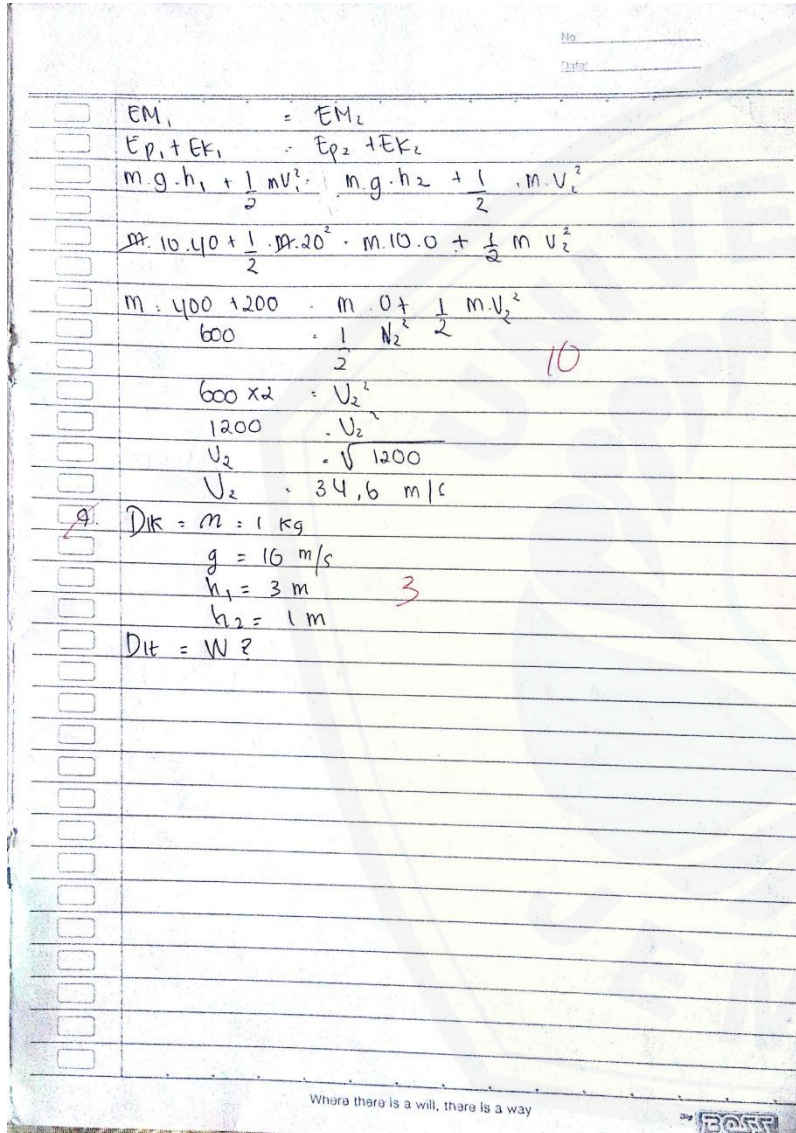 No.
Date:
EM₁ = EM₂
Ep₁ + EK₁ = Ep₂ + EK₂
m.g.h₁ + 1/2 mV₁² = m.g.h₂ + 1/2 .m.V₂²
m.10.40 + 1/2 .m.20² = m.10.0 + 1/2 m V₂²
m = 400 + 200 = m.0 + 1/2 m.V₂²
600 = 1/2 V₂²
10
600 x2 = V₂²
1200 = V₂²
V₂ = √1200
V₂ = 34,6 m/s
9. Dik = m = 1 kg
g = 10 m/s
h₁ = 3 m
3
h₂ = 1 m
Dit = W ?
Where there is a will, there is a way
by BOSS